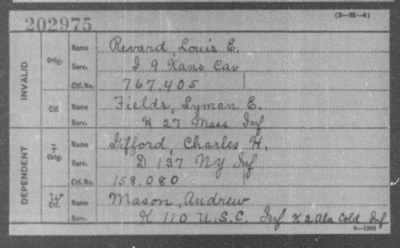 (3—M—4)
202975
INVALID
Orig. Name Revard, Louis E.
Serv. I 9 Kans Cav
Ctf. No. 767,405
Ctf. Name Fields, Lyman E.
Serv. K 27 Mass Inf
DEPENDENT
Orig. Name Gifford, Charles H.
Serv. D 137 NY Inf
Ctf. No. 158,080
W Ctf. Name Mason, Andrew
Serv. K 110 U.S.C. Inf K 2 Ala Cold Inf